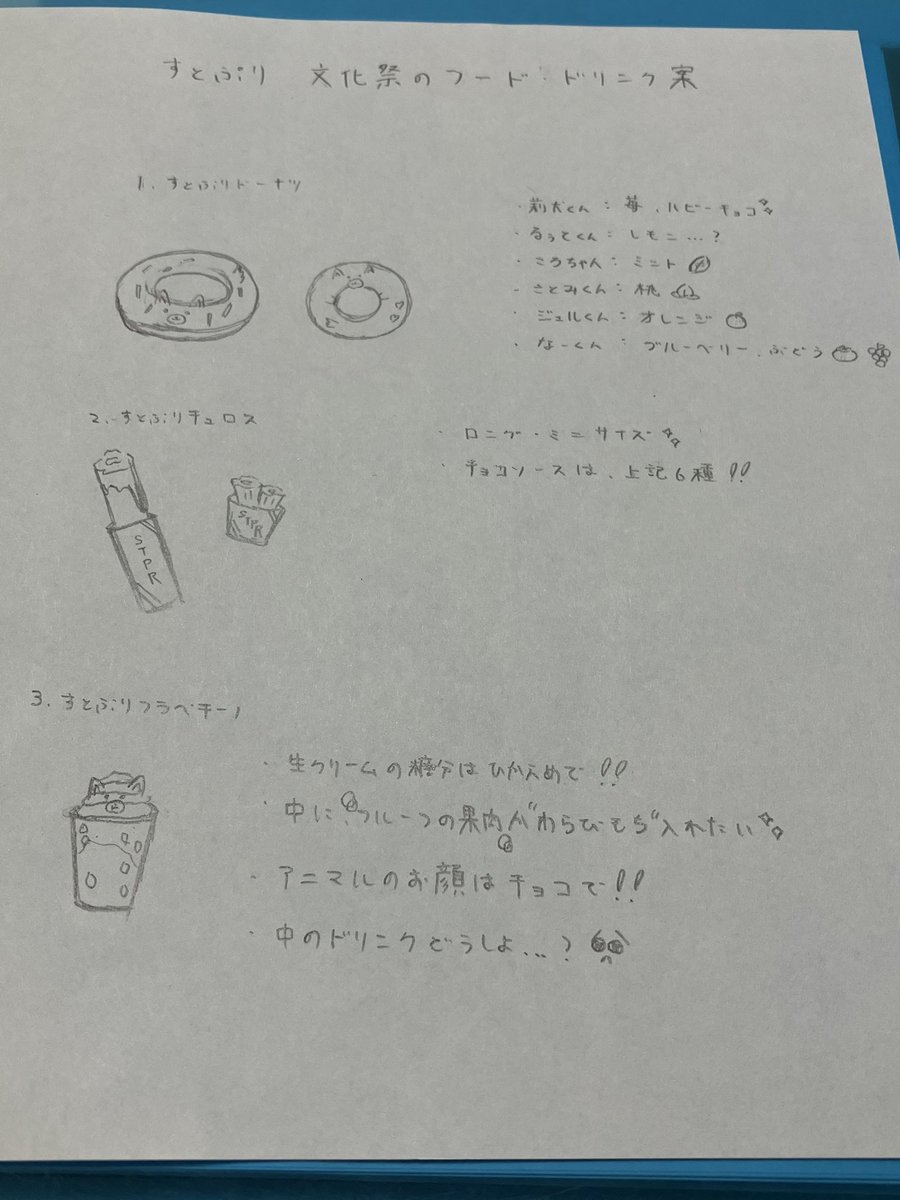 すとぷり 文化祭のフード・ドリンク案
1. すとぷりドーナツ
・莉犬くん：苺、ルビーチョコ
・るぅとくん：レモン…？
・ころちゃん：ミント
・さとみくん：桃
・ジェルくん：オレンジ
・なーくん：ブルーベリー、ぶどう
2. すとぷりチュロス
・ロング・ミニサイズ
・チョコソースは、上記6種！！
STPR
STPR
3. すとぷりフラペチーノ
・生クリームの糖分はひかえめで！！
・中に、フルーツの果肉かわらびもち入れたい
・アニマルのお顔はチョコで！！
・中のドリンクどうしよ…？